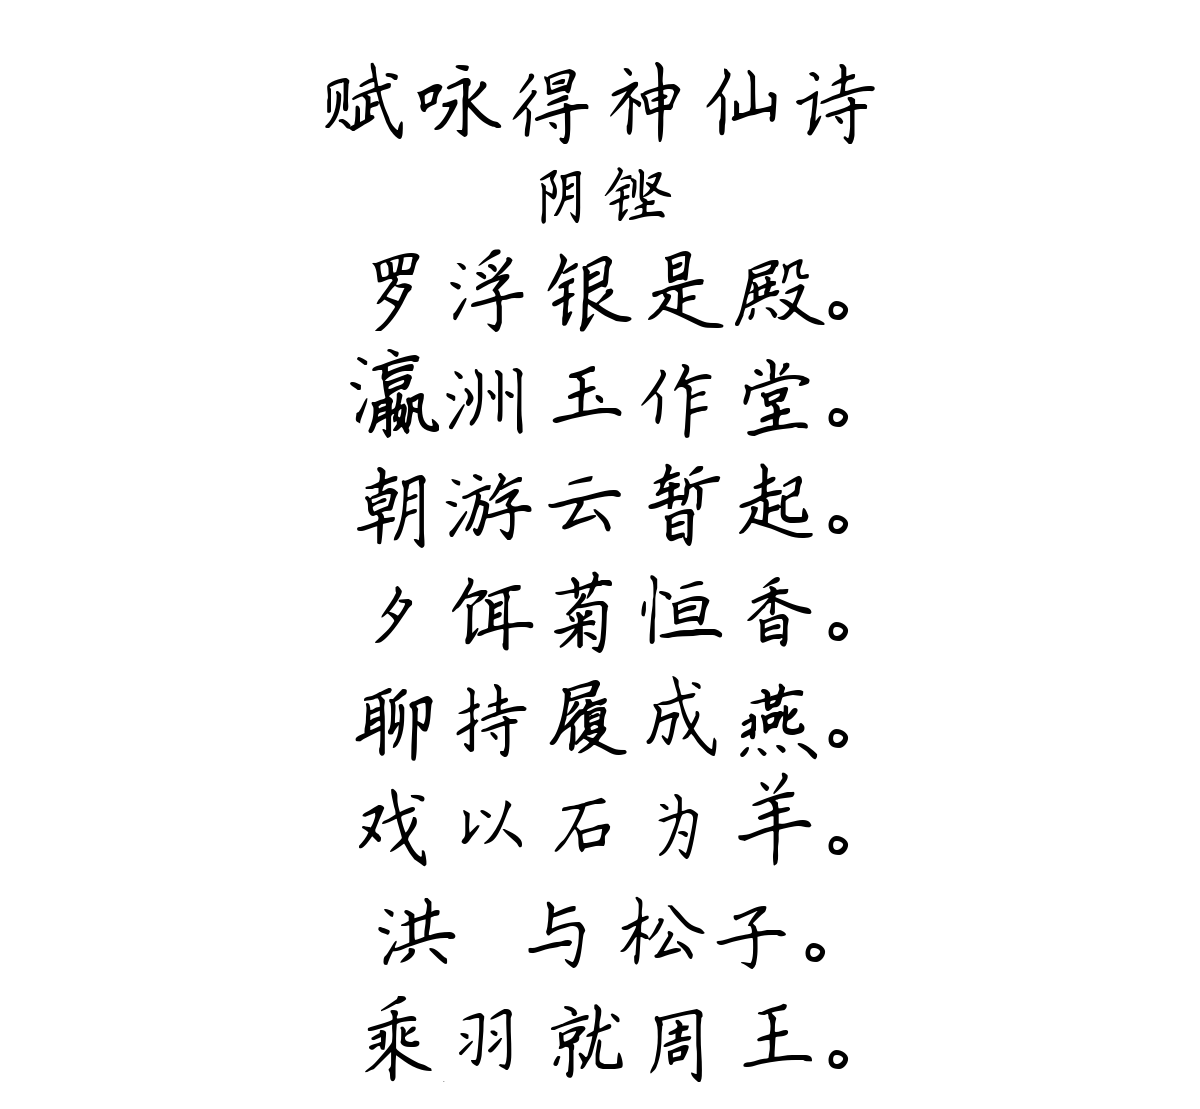 赋咏得神仙诗
阴铿
罗浮银是殿。
瀛洲玉作堂。
朝游云暂起。
夕饵菊恒香。
聊持履成燕。
戏以石为羊。
洪 与松子。
乘羽就周王。